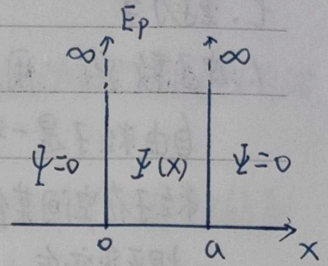 Eₚ
∞ ∞
Ψ=0 Ψ(x) Ψ=0
0 a x